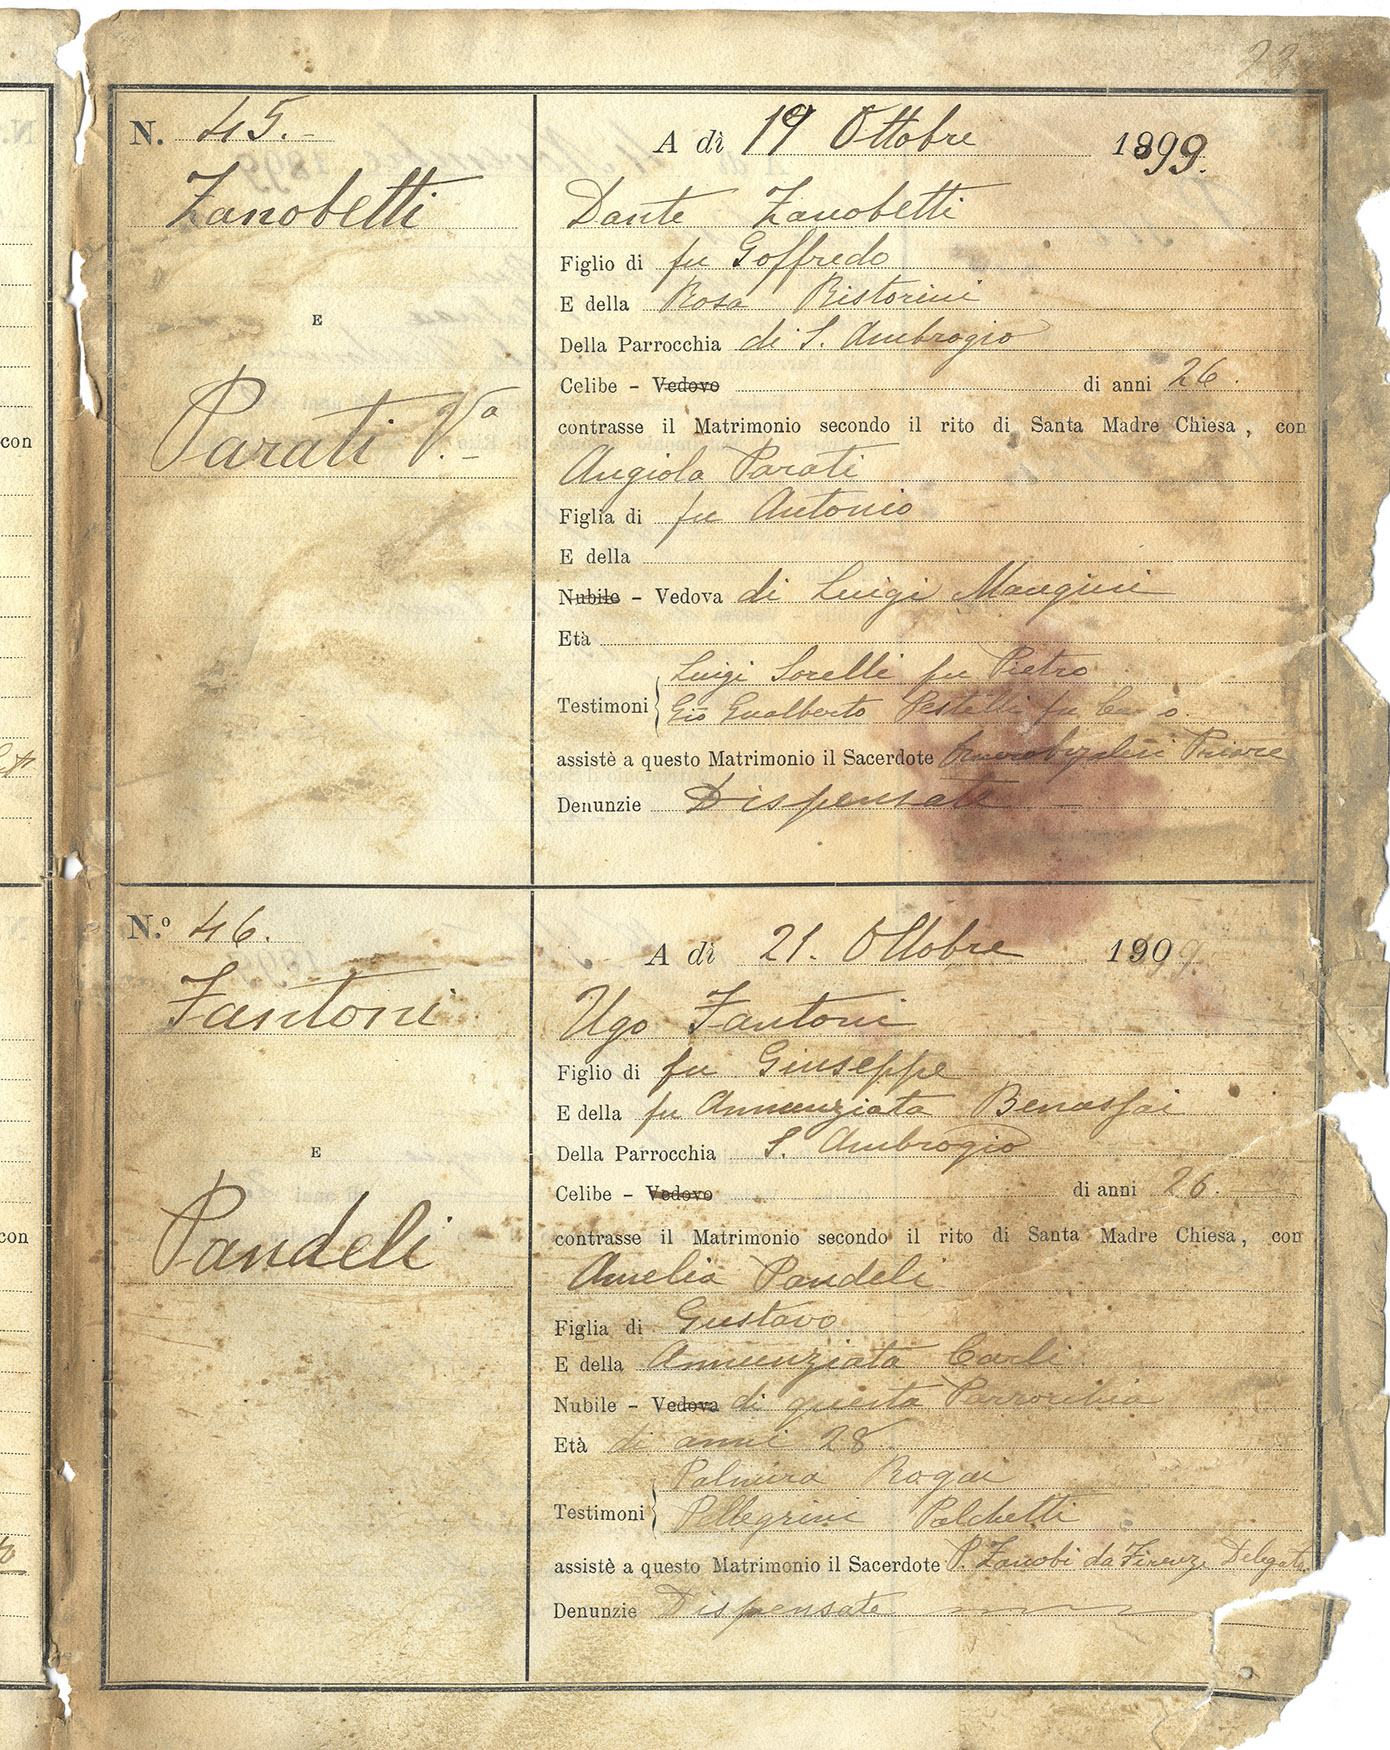 23
N. 45.-
Zanobetti
E
Parati V.a
A dì 19 Ottobre 1899.
Dante Zanobetti
Figlio di fu Goffredo
E della Rosa Ristorini
Della Parrocchia di S. Ambrogio
Celibe - Vedovo di anni 26.
contrasse il Matrimonio secondo il rito di Santa Madre Chiesa, con
Angiola Parati
Figlia di fu Antonio
E della
Nubile - Vedova di Luigi Mangini
Età
Testimoni Luigi Sorelli fu Pietro
Gio Gualberto Pestelli fu
assistè a questo Matrimonio il Sacerdote Priore
Denunzie Dispensate
N.o 46.
Fantoni
E
Pandeli
A dì 21. Ottobre 1909
Ugo Fantoni
Figlio di fu Giuseppe
E della fu Annunziata Benassai
Della Parrocchia S. Ambrogio
Celibe - Vedovo di anni 26.
contrasse il Matrimonio secondo il rito di Santa Madre Chiesa, con
Amelia Pandeli
Figlia di Gustavo
E della Annunziata Carli
Nubile - Vedova di questa Parrocchia
Età di anni 28
Testimoni Palmira Rogai
Pellegrini Palchetti
assistè a questo Matrimonio il Sacerdote P. Zanobi da Firenze Delegato
Denunzie Dispensate
con
con